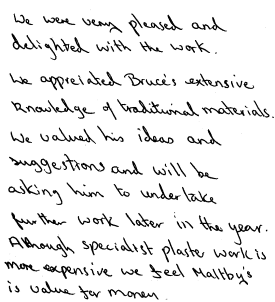 We were very pleased and
delighted with the work.
We appreciated Bruce's extensive
Knowledge of traditional materials.
We valued his ideas and
suggestions and will be
asking him to undertake
further work later in the year.
Although specialist plaster work is
more expensive we feel Maltby's
is value for money.